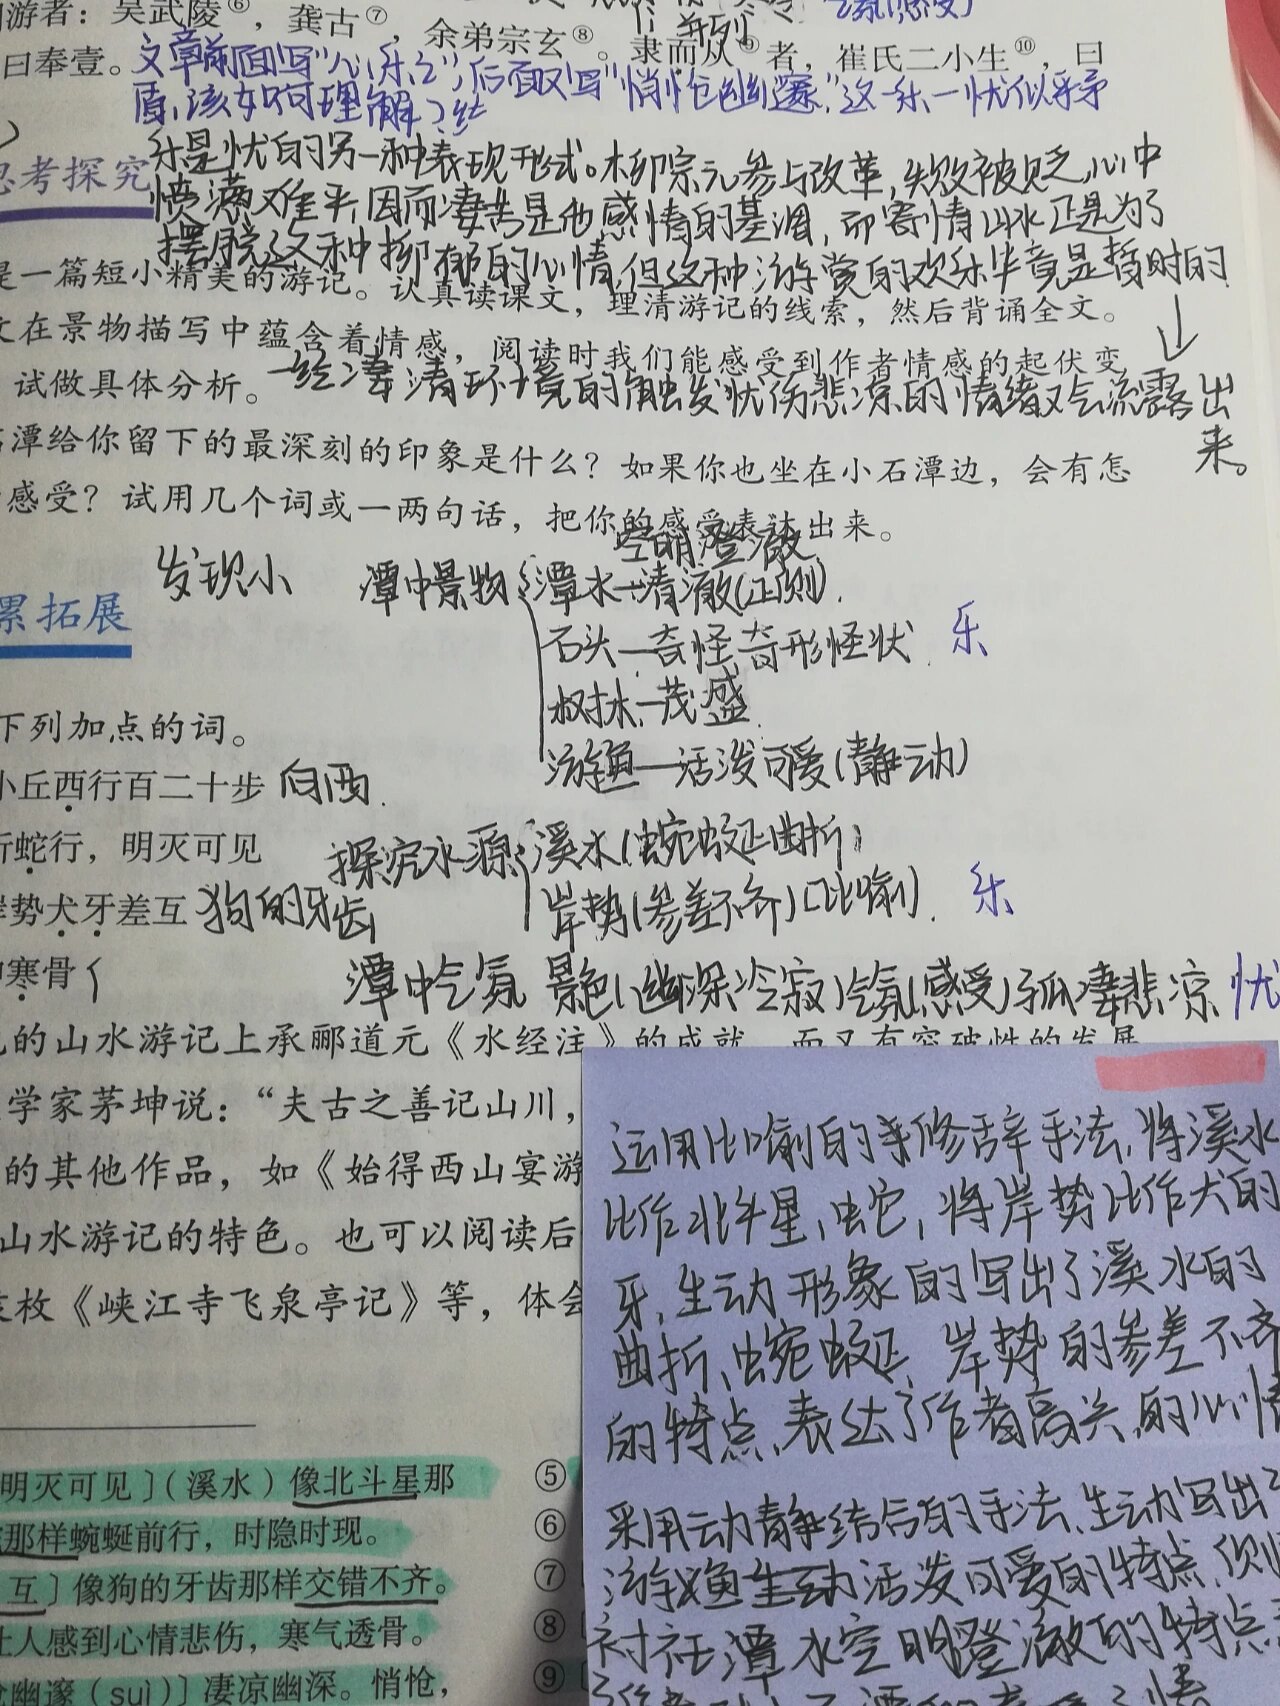 游者：吴武陵⑥，龚古⑦，余弟宗玄⑧。隶而从⑨者，崔氏二小生⑩，曰
并列
曰奉壹。
文章前面写“心乐之”，后面又写“悄怆幽邃”，这一乐一忧似乎矛
盾，该如何理解？
乐是忧的另一种表现形式。柳宗元参与改革，失败被贬，心中
思考探究
愤满难平，因而凄苦是他感情的基调，而寄情山水正是为了
摆脱这种抑郁的心情，但这种游赏的欢乐毕竟是暂时的
是一篇短小精美的游记。认真读课文，理清游记的线索，然后背诵全文。
文在景物描写中蕴含着情感，阅读时我们能感受到作者情感的起伏变
试做具体分析。
一经凄清环境的触发忧伤悲凉的情绪又会流露出
来。
石潭给你留下的最深刻的印象是什么？如果你也坐在小石潭边，会有怎
感受？试用几个词或一两句话，把你的感受表达出来。
空明澄澈
发现小 潭中景物 潭水—清澈(正侧)
累拓展
石头—奇怪，奇形怪状 乐
树木—茂盛
下列加点的词。
游鱼—活泼可爱(静动)
小丘西行百二十步 向西
折蛇行，明灭可见
探究水源 溪水(蜿蜒曲折)
岸势犬牙差互 狗的牙齿
岸势(参差不齐)(比喻) 乐
寒骨
潭中气氛 景色(幽深冷寂)气氛(感受)孤凄悲凉 忧
的山水游记上承郦道元《水经注》的成就，而又有突破性的发展
学家茅坤说：“夫古之善记山川，
的其他作品，如《始得西山宴游
山水游记的特色。也可以阅读后
枚《峡江寺飞泉亭记》等，体会
运用比喻的修辞手法，将溪水
比作北斗星，蛇，将岸势比作犬的
牙，生动形象的写出了溪水的
曲折、蜿蜒，岸势的参差不齐
的特点，表达了作者高兴的心情
采用动静结合的手法，生动写出了
游鱼活泼可爱的特点，侧
衬托潭水空明澄澈的特点
明灭可见〕(溪水)像北斗星那
那样蜿蜒前行，时隐时现。
互〕像狗的牙齿那样交错不齐。
让人感到心情悲伤，寒气透骨。
怆幽邃（suì）〕凄凉幽深。悄怆，
⑤
⑥
⑦
⑧
⑨